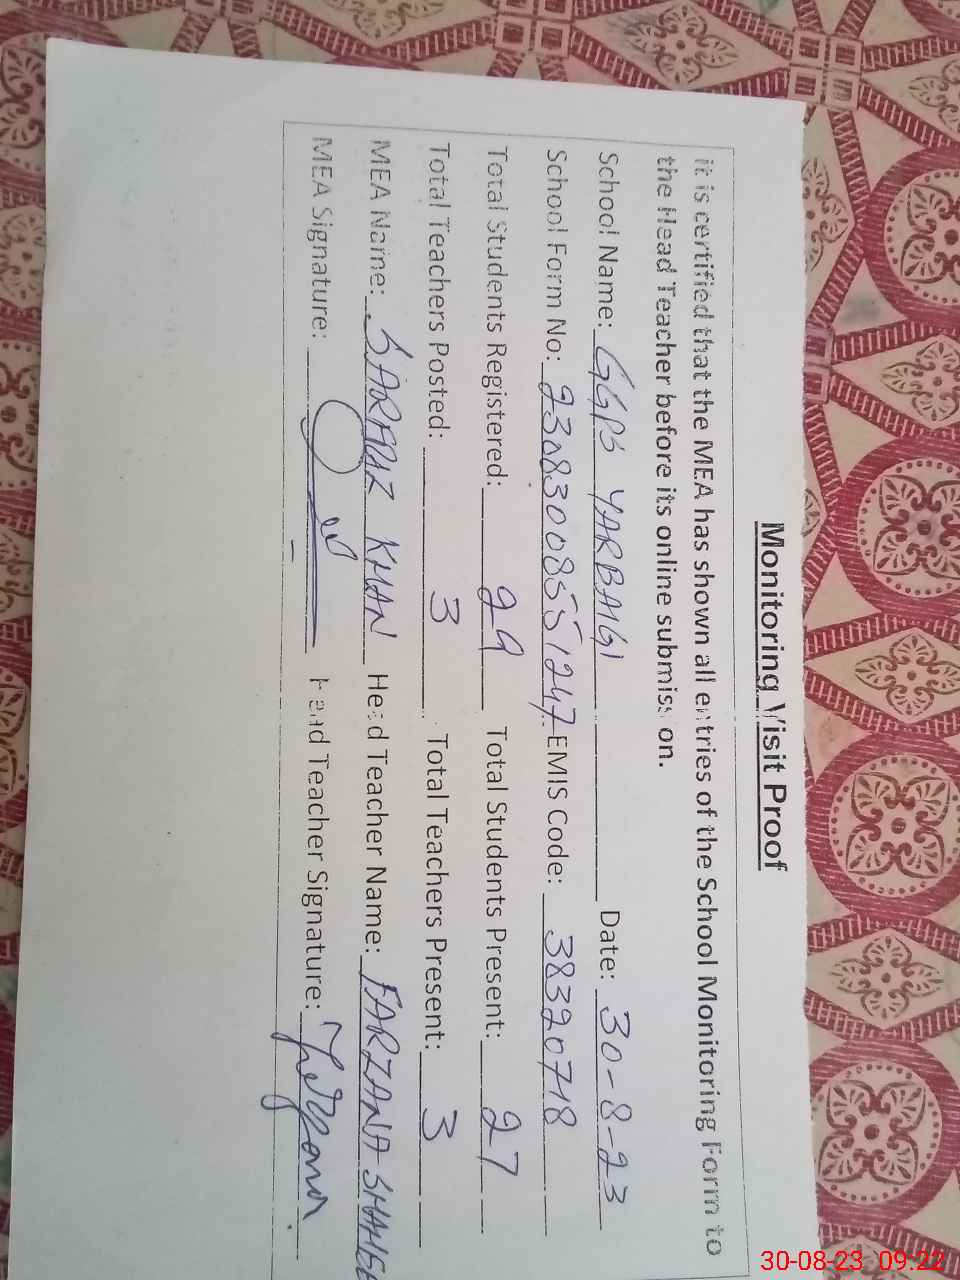 Monitoring Visit Proof
it is certified that the MEA has shown all entries of the School Monitoring Form to
the Head Teacher before its online submission.
School Name: GGPS YARBAIGI Date: 30-8-23
School Form No: 23083008551247 EMIS Code: 38320718
Total Students Registered: 29 Total Students Present: 27
Total Teachers Posted: 3 Total Teachers Present: 3
MEA Name: SARFRAZ KHAN Head Teacher Name: FARZANA
MEA Signature: Head Teacher Signature:
30-08-23 09:22